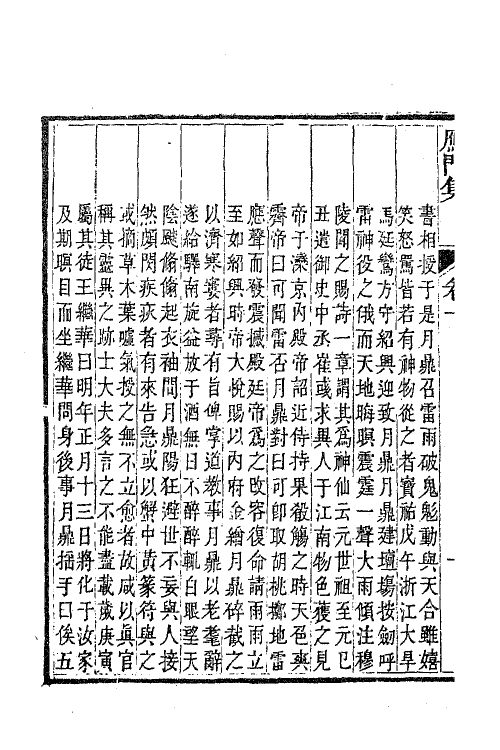 雁門集
卷一
一
書相授于是月鼎召雷雨破鬼魁動與天合雖嬉
笑怒罵皆若有神物從之者寶祐戊午浙江大旱
馬廷鸞方守紹興迎致月鼎月鼎建壇場按劒呼
雷神役之俄而天地晦暝震霆一聲大雨傾注穆
陵聞之賜詩一章謂其爲神仙云元世祖至元己
丑遣御史中丞崔彧求異人于江南物色獲之見
帝于灤京内殿帝詔近侍持果殽觴之時天色爽
霽帝曰可聞雷否月鼎對曰可卽取胡桃擲地雷
應聲而發震撼殿廷帝爲之改容復命請雨雨立
至如紹興時帝大悅賜以内府金繒月鼎碎截之
以濟寒窶者尋有旨俾掌道教事月鼎以老耄辭
遂給驛南旋益放于酒無日不醉醉輒白眼望天
陰飇翛翛起衣袖間月鼎陽狂避世不妄與人接
然頗閔疾疢者有來告急或以蟹中黃篆符與之
或摘草木葉噓氣授之無不立愈者故咸以眞官
稱其靈異之跡士大夫多言之不能盡載歲庚寅
屬其徒王繼華曰明年正月十三日將化于汝家
及期瞑目而坐繼華問身後事月鼎搖手曰俟五